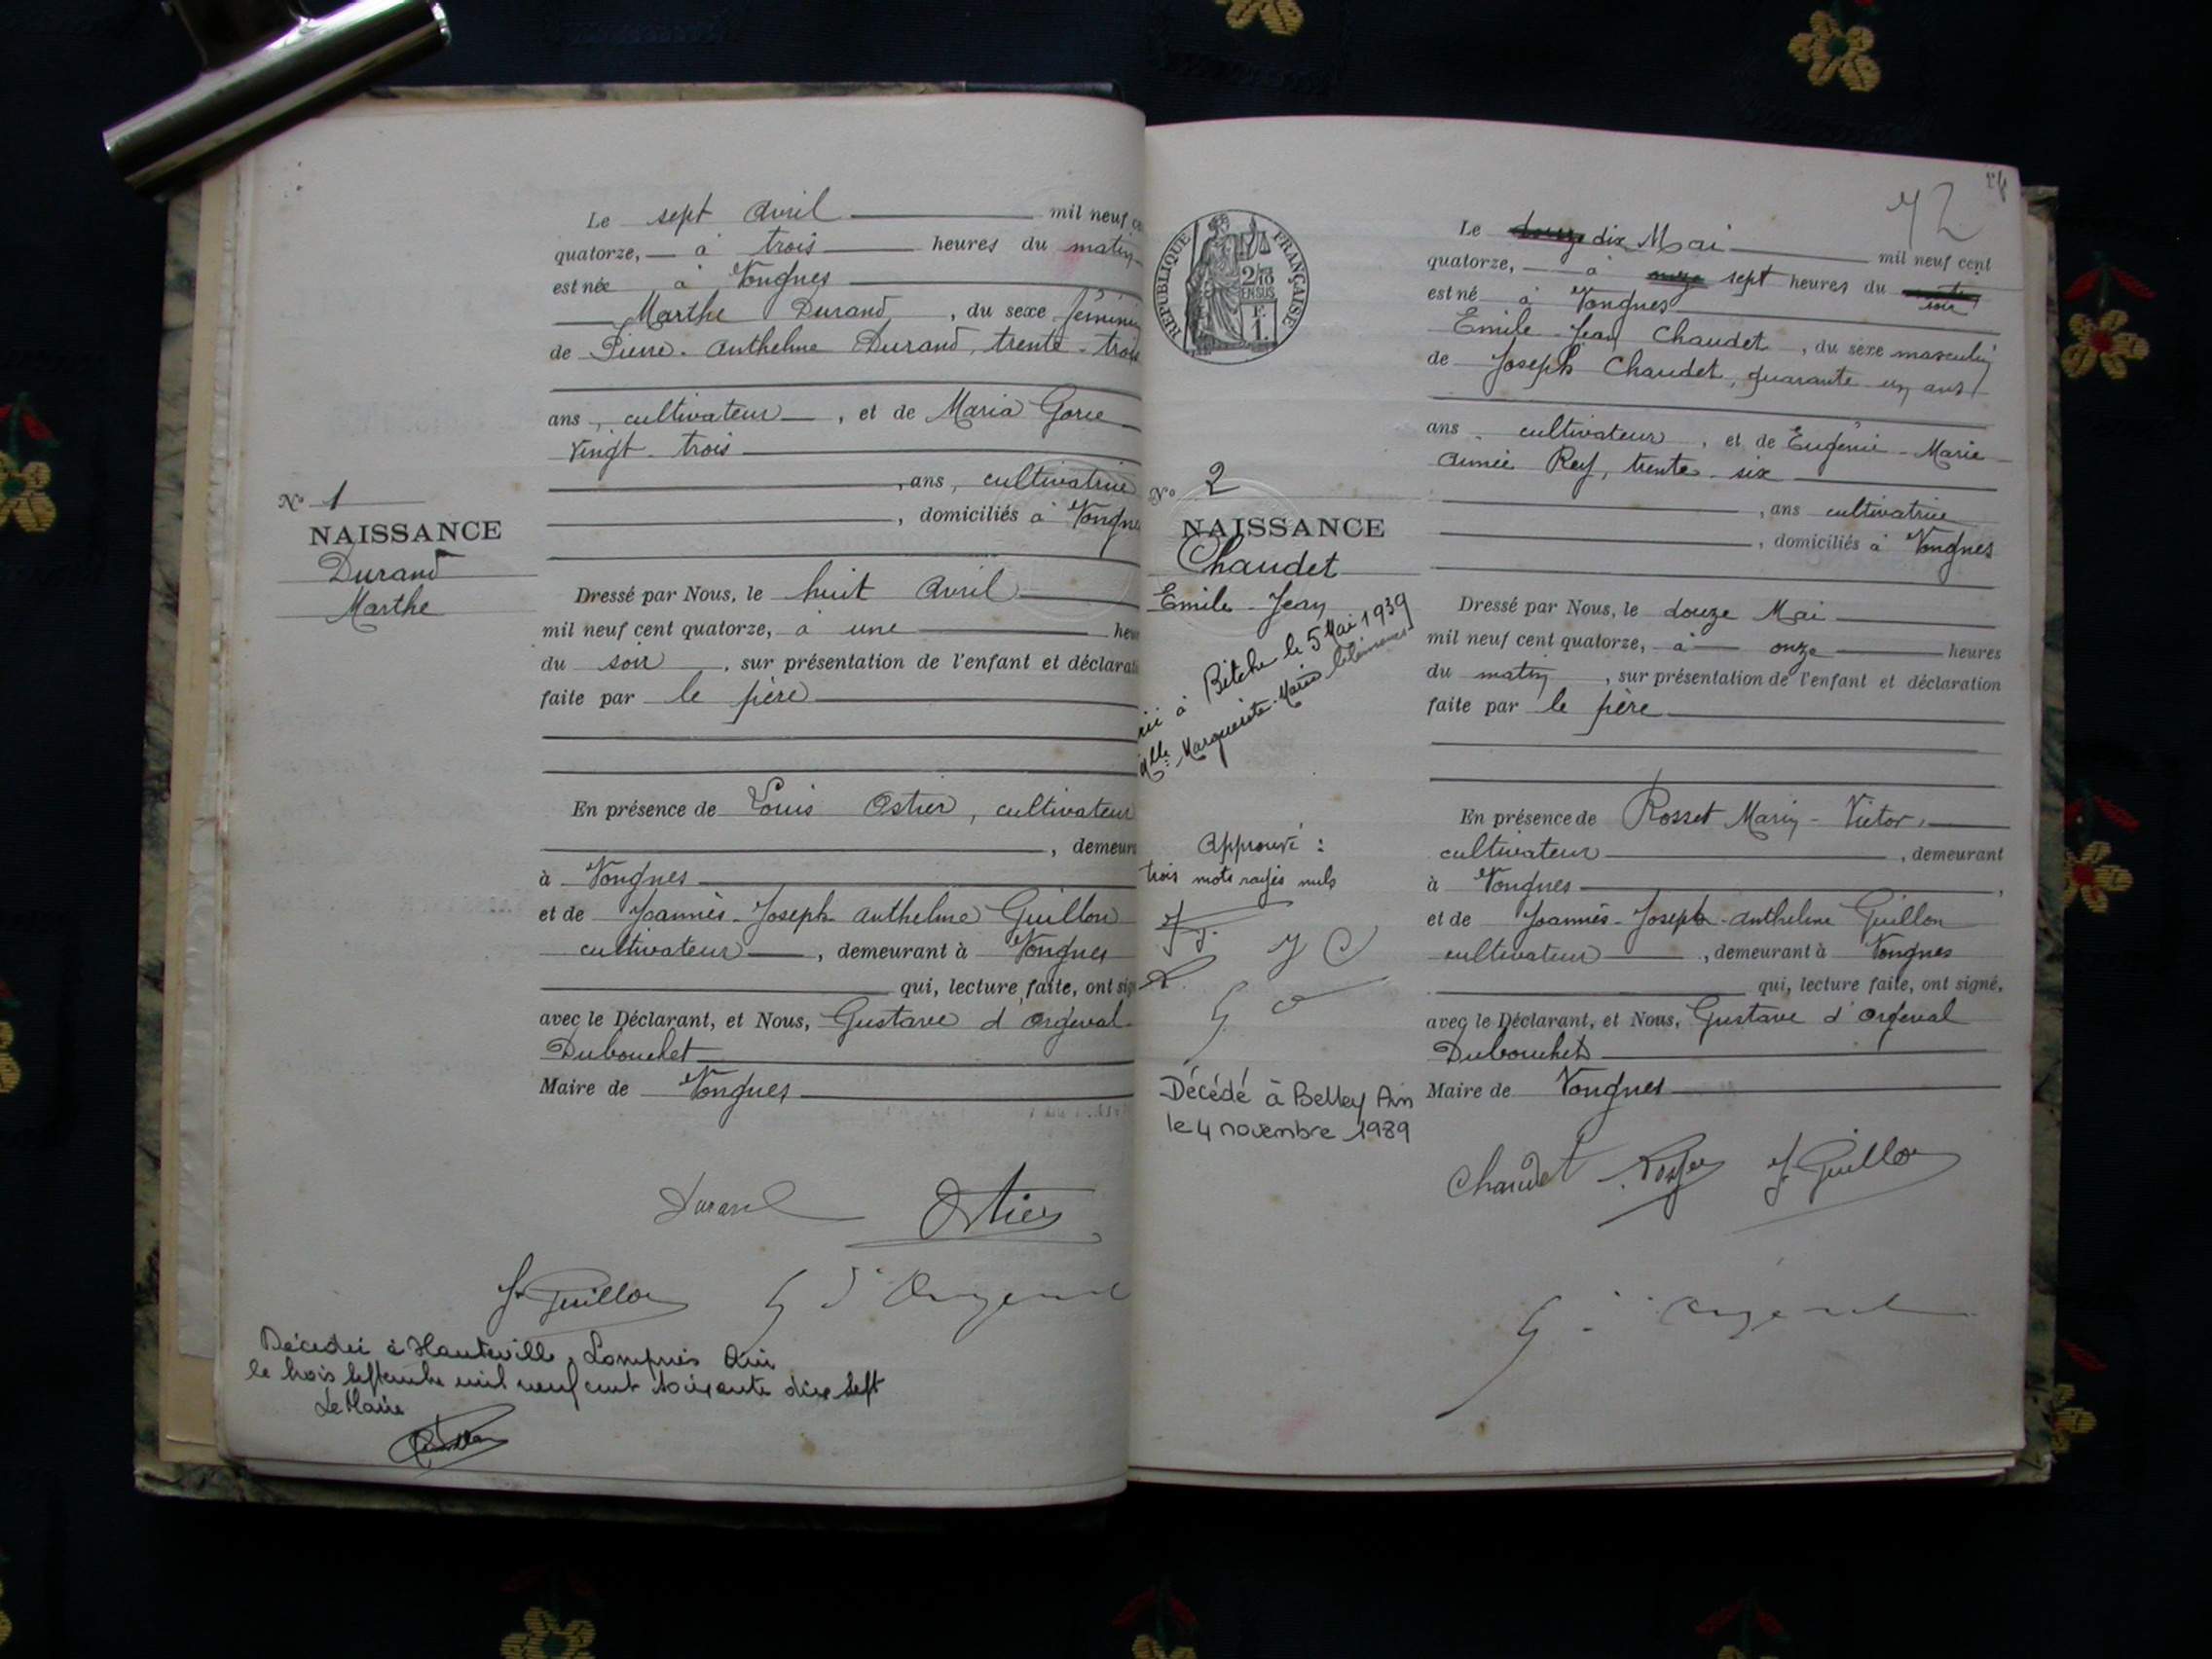 Le sept Avril mil neuf
quatorze, à trois heures du matin
est née à Vongnes
Marthe Durand, du sexe féminin
de Pierre-Anthelme Durand, trente-trois
ans, cultivateur, et de Maria Gorce
vingt-trois
, ans, cultivatrice
, domiciliés à Vongnes
No 1
NAISSANCE
Durand
Marthe
Dressé par Nous, le huit Avril
mil neuf cent quatorze, à une heu
du soir, sur présentation de l'enfant et déclarati
faite par le père
En présence de Louis Ostier, cultivateur
, demeura
à Vongnes
et de Joannès-Joseph-Anthelme Guillon
cultivateur, demeurant à Vongnes
qui, lecture faite, ont sig
avec le Déclarant, et Nous, Gustave d'Orgeval
Dubouchet
Maire de Vongnes
Durand Ostier
J. Guillon G d'Orgeval
Décédée à Hauteville Lompnes Ain
le trois septembre mil neuf cent soixante dix sept
Le Maire
72
REPUBLIQUE FRANÇAISE
2/10
EN SUS
1 F.
Le douze dix Mai mil neuf cent
quatorze, à onze sept heures du matin soir
est né à Vongnes
Emile-Jean Chaudet, du sexe masculin
de Joseph Chaudet, quarante un ans
ans, cultivateur, et de Eugénie-Marie-
Aimée Rey, trente-six
, ans cultivatrice
, domiciliés à Vongnes
No 2
NAISSANCE
Chaudet
Emile-Jean
rié à Bitche le 5 Mai 1939
Mlle Marguerite Marie
Dressé par Nous, le douze Mai
mil neuf cent quatorze, à onze heures
du matin, sur présentation de l'enfant et déclaration
faite par le père
En présence de Rosset Marin-Victor,
cultivateur, demeurant
à Vongnes,
et de Joannès-Joseph-Anthelme Guillon
cultivateur, demeurant à Vongnes
qui, lecture faite, ont signé,
avec le Déclarant, et Nous, Gustave d'Orgeval
Dubouchet
Maire de Vongnes
Approuvé :
trois mots rayés nuls
J C
G
Décédé à Belley Ain
le 4 novembre 1989
Chaudet Rosset J. Guillon
G d'Orgeval